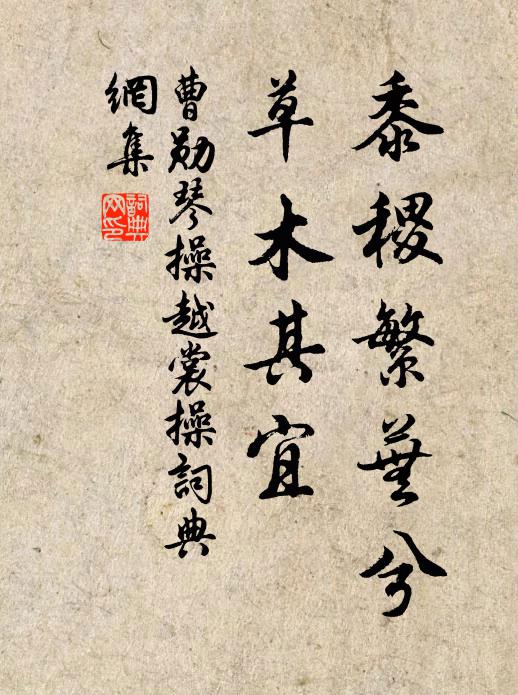 黍稷繁蕪兮
草木其宜
曹勛琴操越裳操詞典
網集
詞典網印